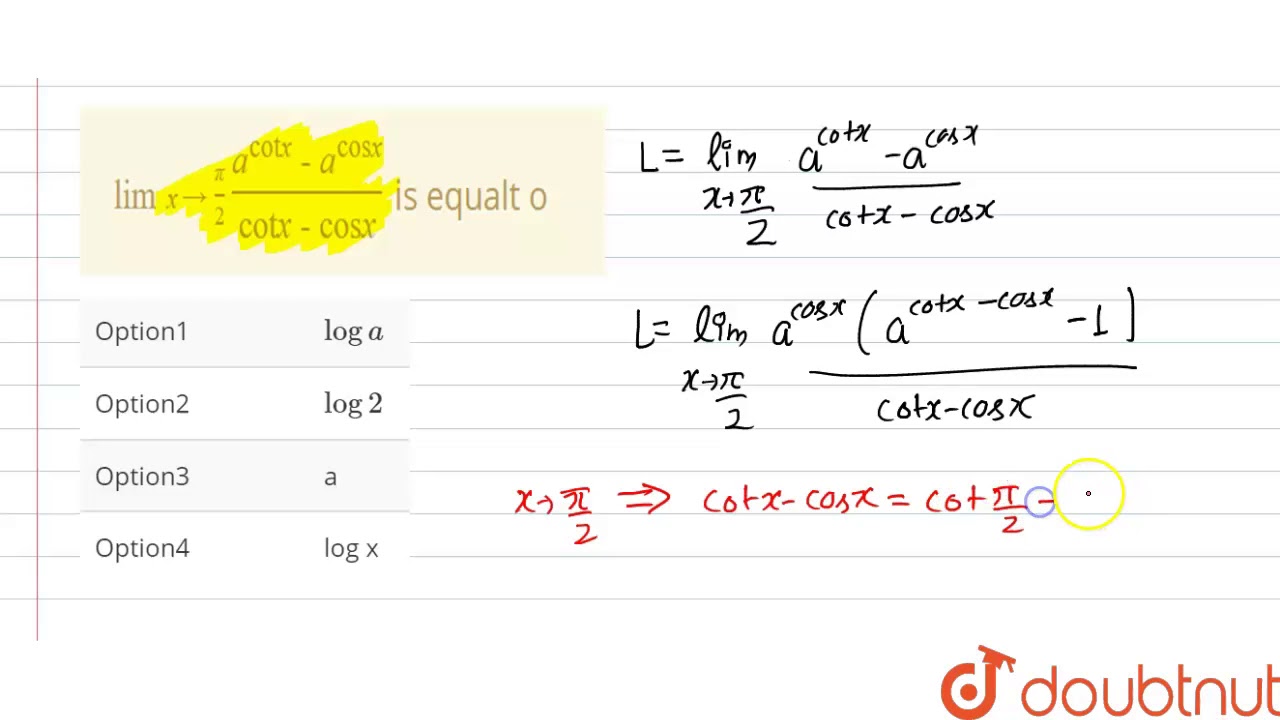 lim x→π/2 a^cotx - a^cosx / cotx - cosx is equalt o
Option1 log a
Option2 log 2
Option3 a
Option4 log x
L = lim x→π/2 a^cotx - a^cosx / cotx - cosx
L = lim x→π/2 a^cosx ( a^cotx - cosx - 1 ] / cotx - cosx
x→π/2 ⇒ cotx - cosx = cot π/2 -
doubtnut